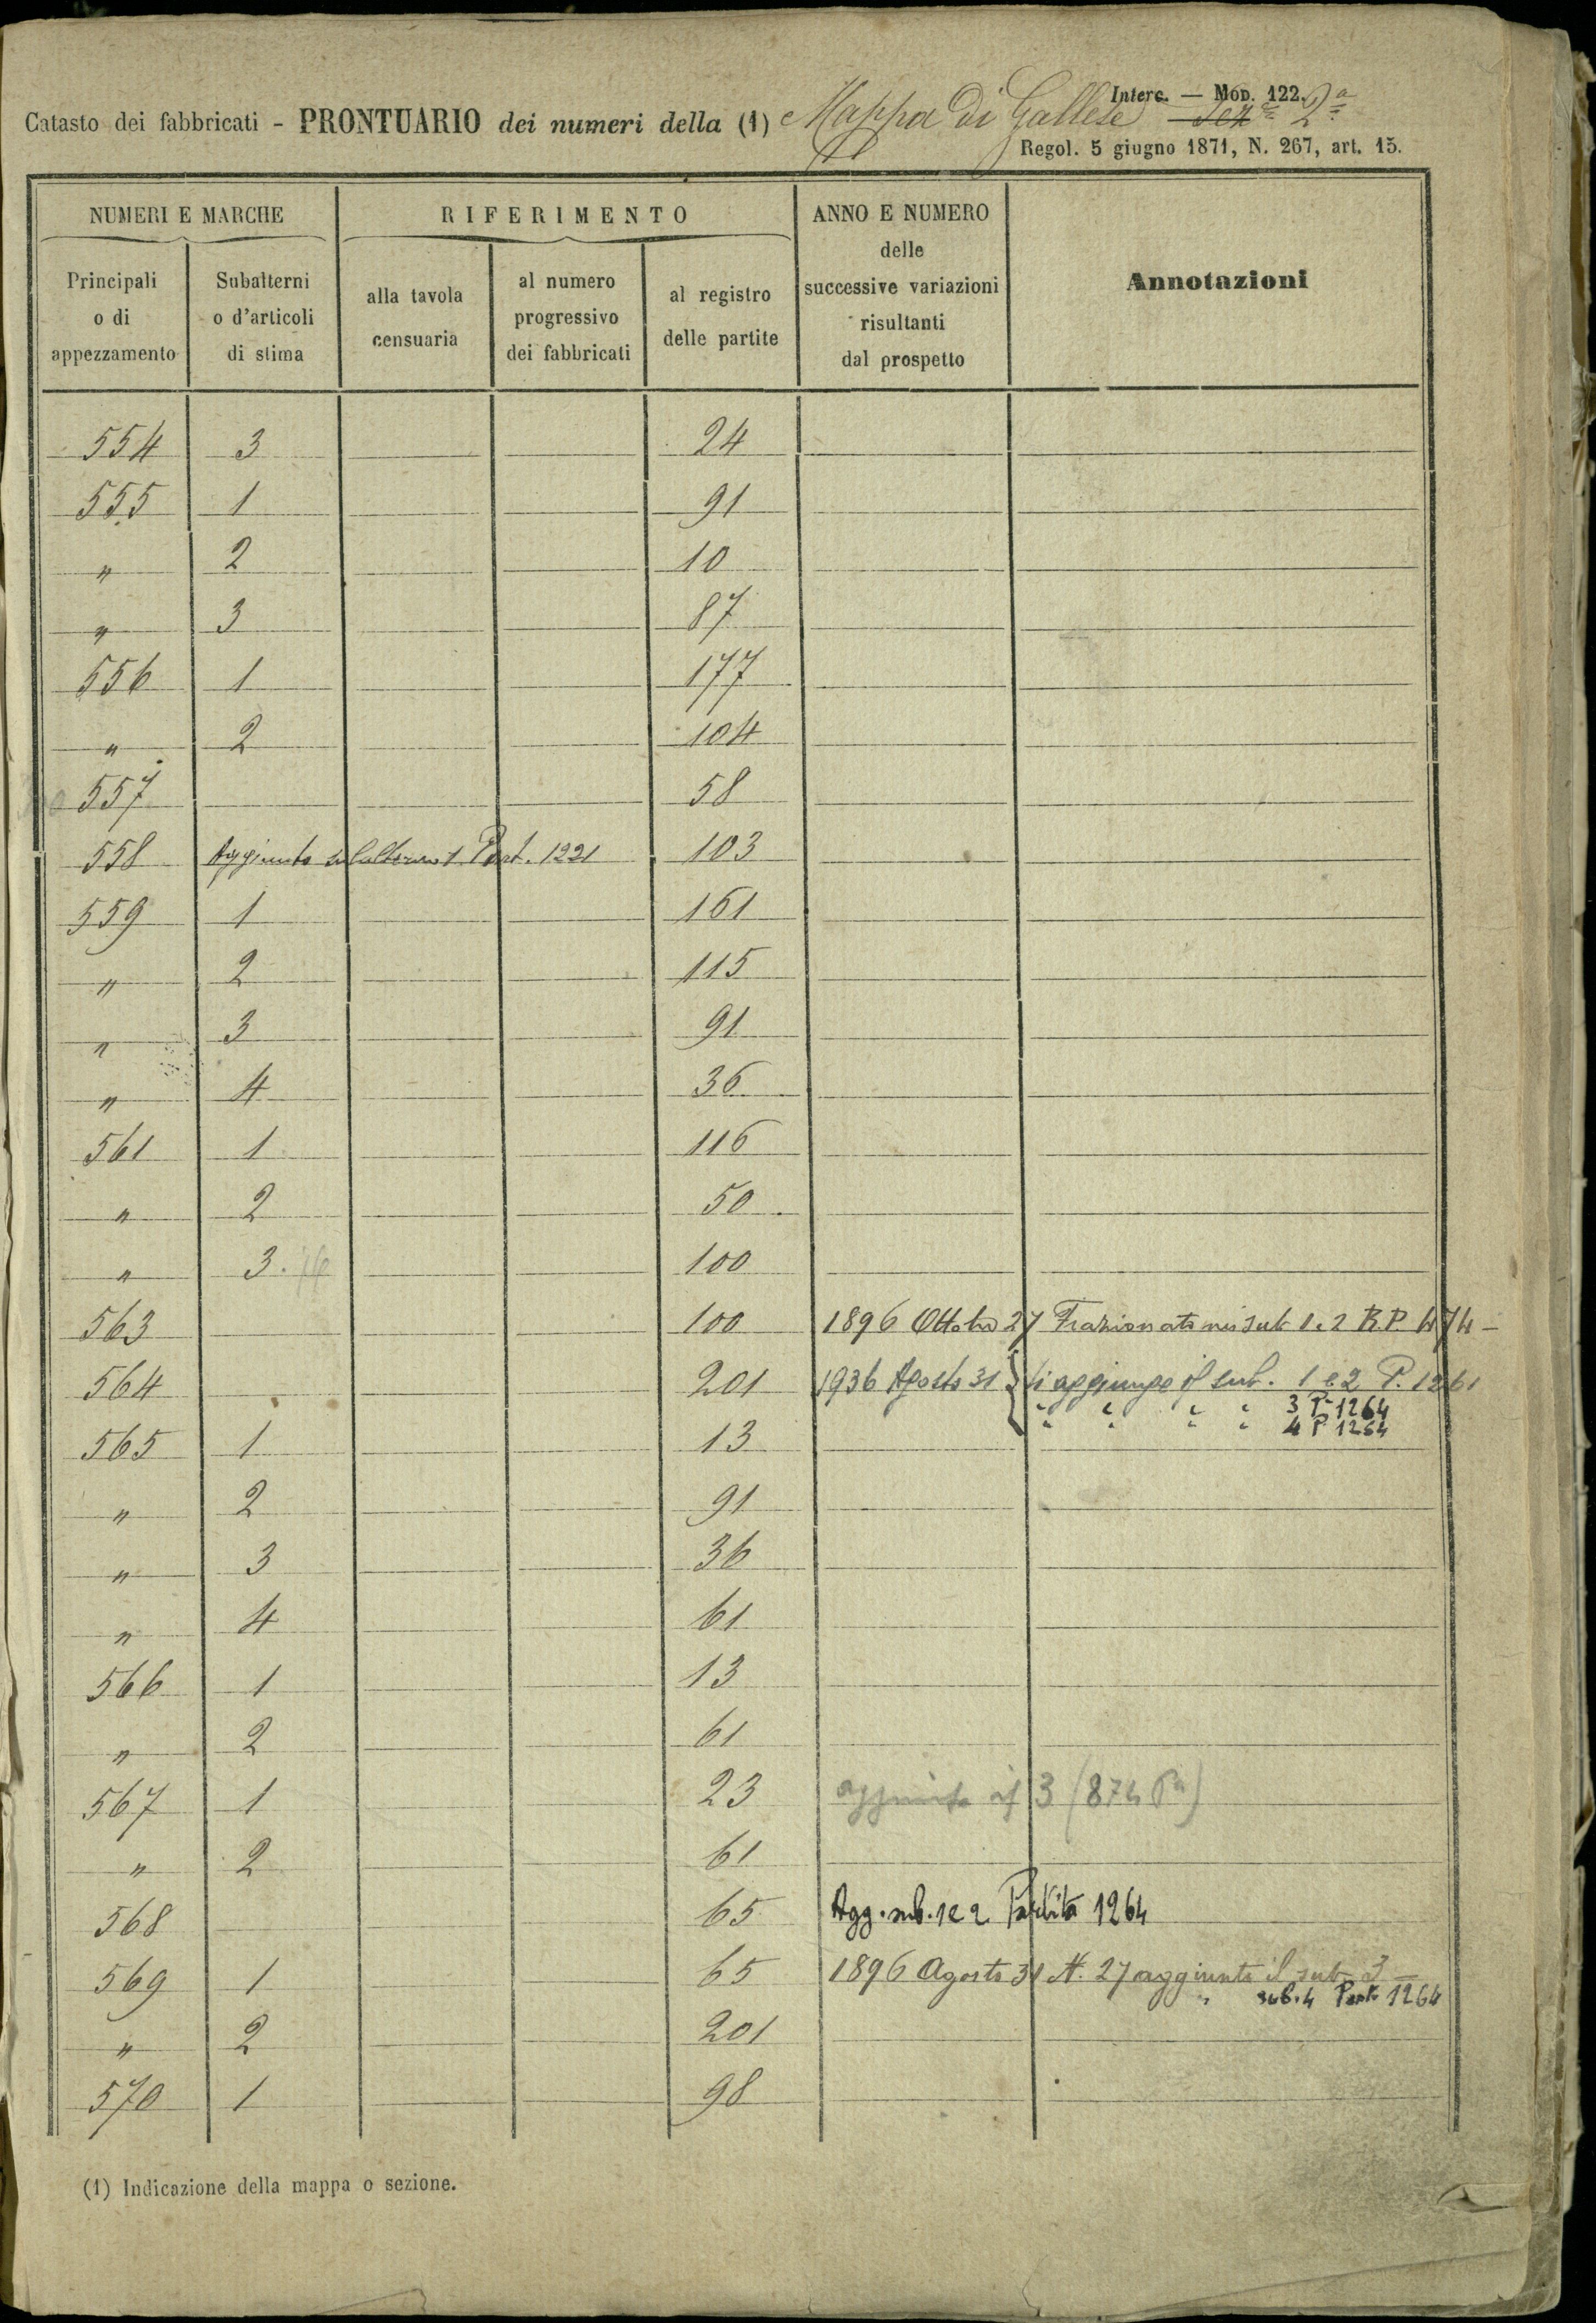 Interc. — Mod. 122.
Catasto dei fabbricati - PRONTUARIO dei numeri della (1) Mappa Di Gallese Sez.e 2a
Regol. 5 giugno 1871, N. 267, art. 15.
NUMERI E MARCHE RIFERIMENTO ANNO E NUMERO delle successive variazioni risultanti dal prospetto Annotazioni
Principali o di appezzamento Subalterni o d'articoli di stima alla tavola censuaria al numero progressivo dei fabbricati al registro delle partite
554 3 24
555 1 91
" 2 10
" 3 87
556 1 177
" 2 104
557 58
558 Aggiunto subalterno 1 Part. 1221 103
559 1 161
" 2 115
" 3 91
" 4 36
561 1 116
" 2 50
" 3. 100
563 100 1896 Ottobre 27 Frazionato nei sub 1 e 2 R.P. 474 –
564 201 1936 Agosto 31 Si aggiunge il sub. 1 e 2 P. 1261
" " " " 3 P. 1264
565 1 13 " " " " 4 P 1264
" 2 91
" 3 36
" 4 61
566 1 13
" 2 61
567 1 23 aggiunto il 3 (874 Pa)
" 2 61
568 65 Agg. sub. 1 e 2 Partita 1264
569 1 65 1896 Agosto 31 N. 27 aggiunto il sub. 3 –
" sub. 4 Part. 1264
" 2 201
570 1 98
(1) Indicazione della mappa o sezione.